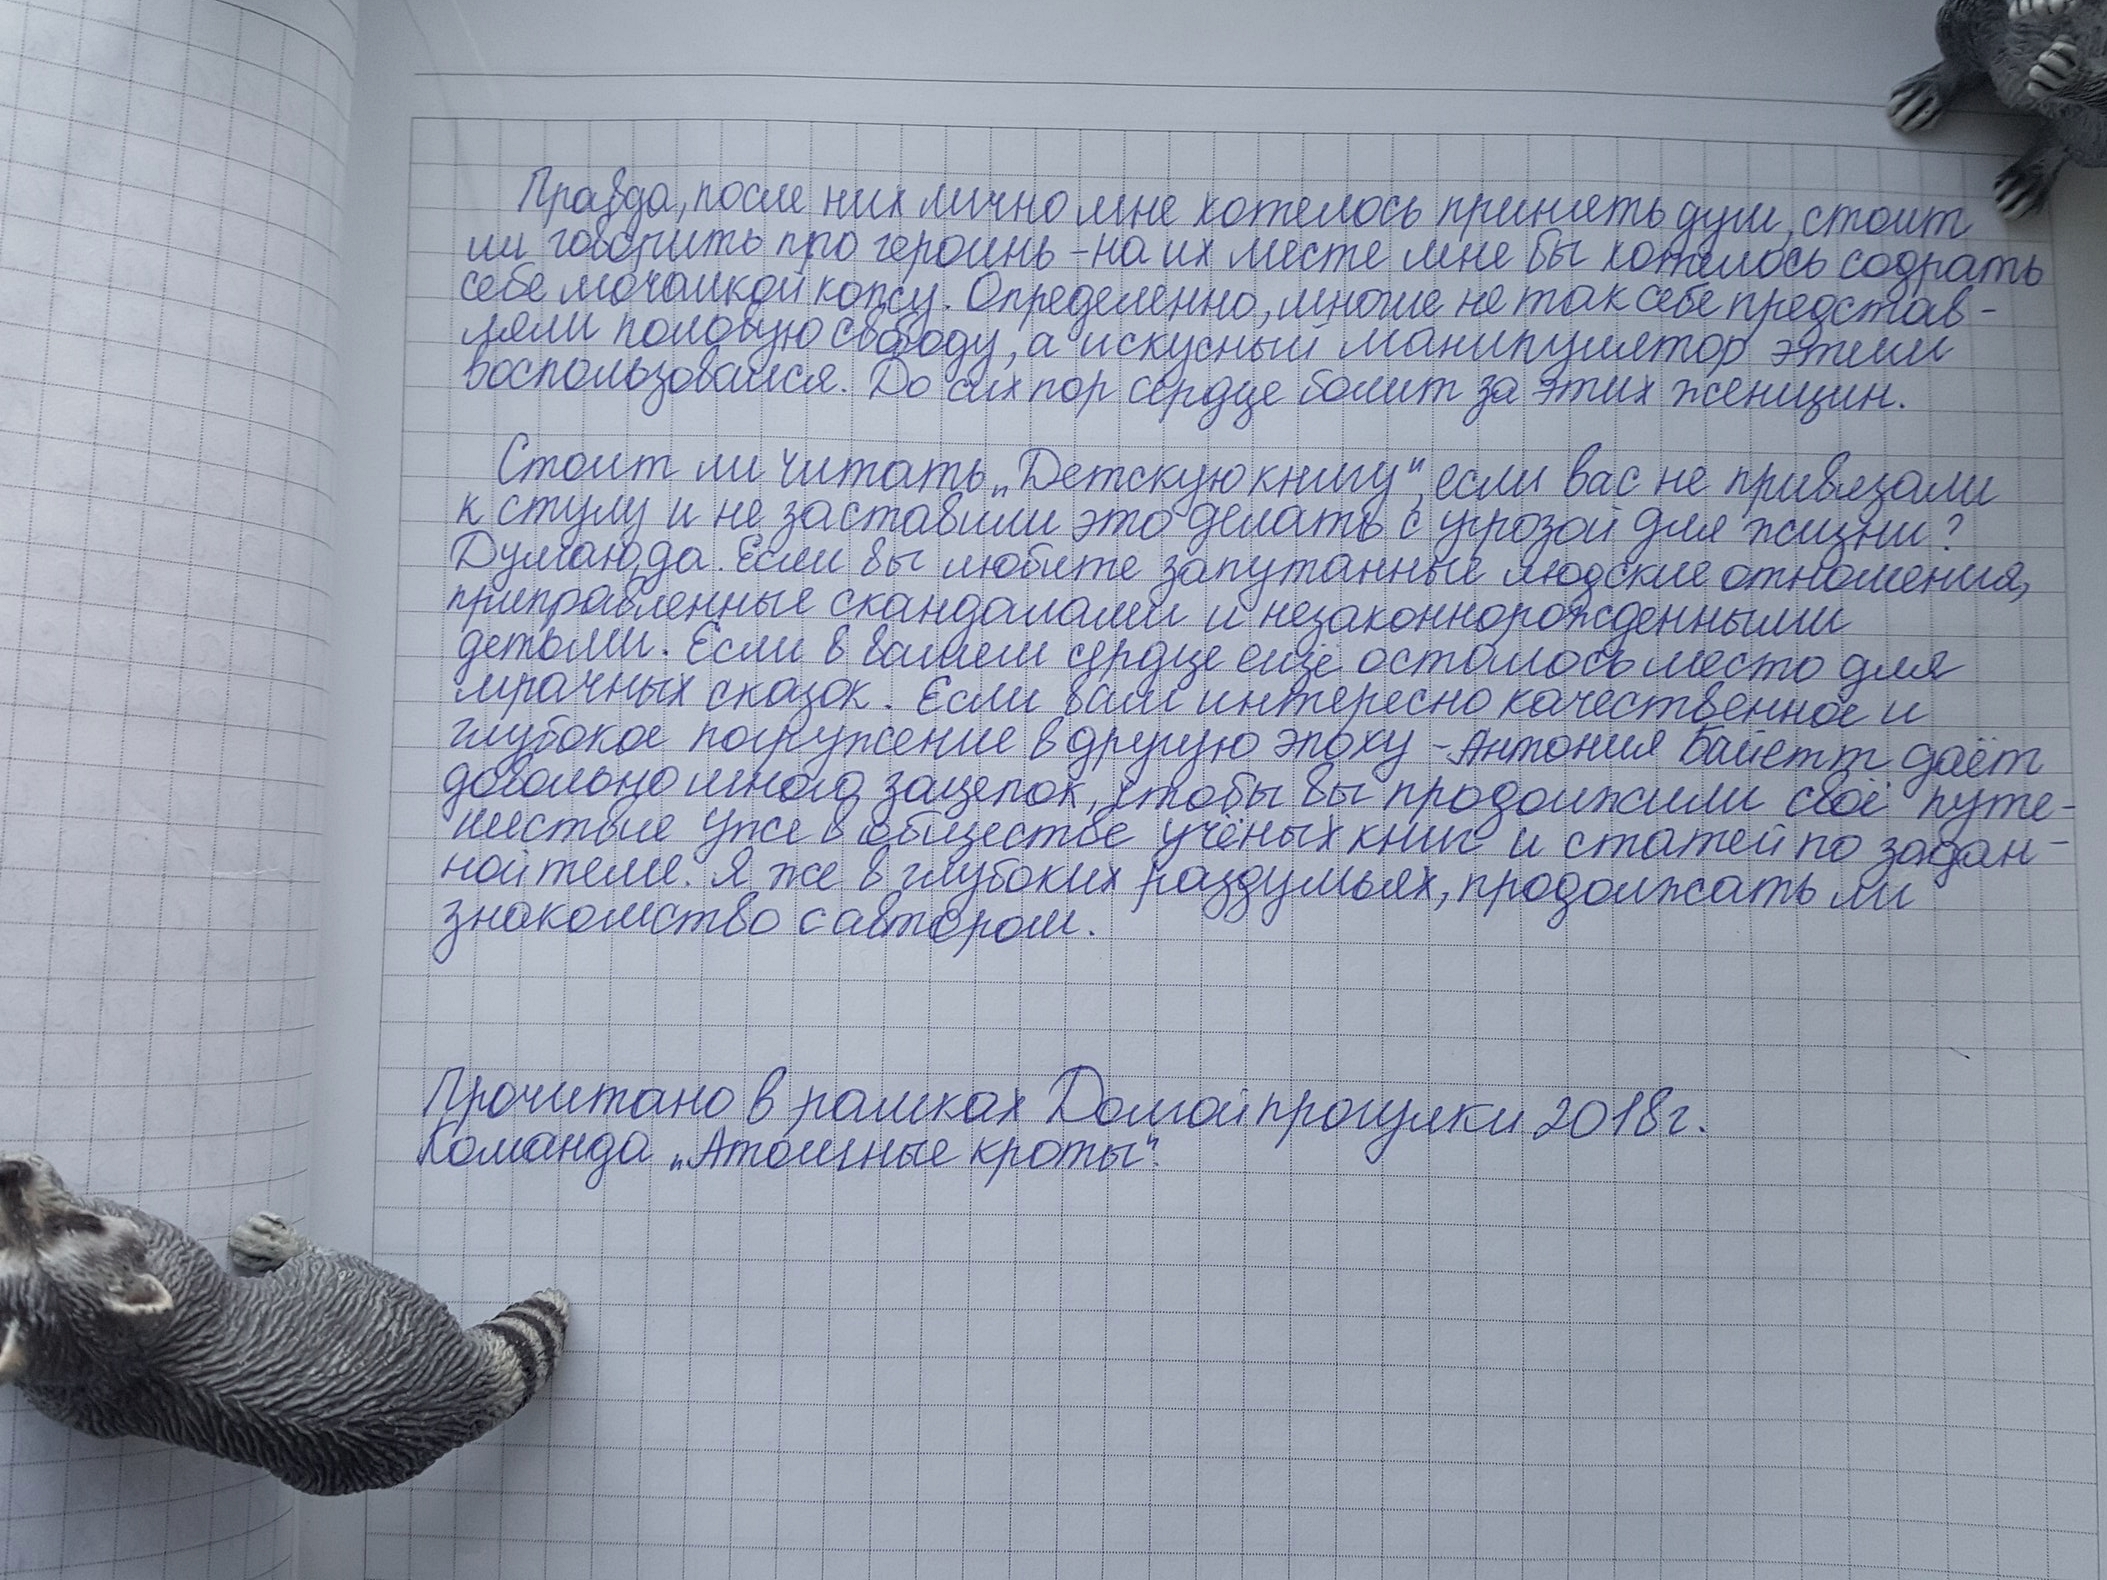 Правда, после них лично мне хотелось принять душ, стоит
ли говорить про героинь - на их месте мне бы хотелось содрать
себе мочалкой кожу. Определенно, многие не так себе представ-
ляли половую свободу, а искусный манипулятор этим
воспользовался. До сих пор сердце болит за этих женщин.
Стоит ли читать „Детскую книгу", если вас не привязали
к стулу и не заставили это делать с угрозой для жизни?
Думаю, да. Если вы любите запутанные людские отношения,
приправленные скандалами и незаконнорожденными
детьми. Если в вашем сердце ещё осталось место для
мрачных сказок. Если вам интересно качественное и
глубокое погружение в другую эпоху - Антония Байетт даёт
довольно много зацепок, чтобы вы продолжили своё путе-
шествие уже в обществе учёных книг и статей по задан-
ной теме. Я же в глубоких раздумьях, продолжать ли
знакомство с автором.
Прочитано в рамках Долгой прогулки 2018г.
Команда „Атомные кроты".